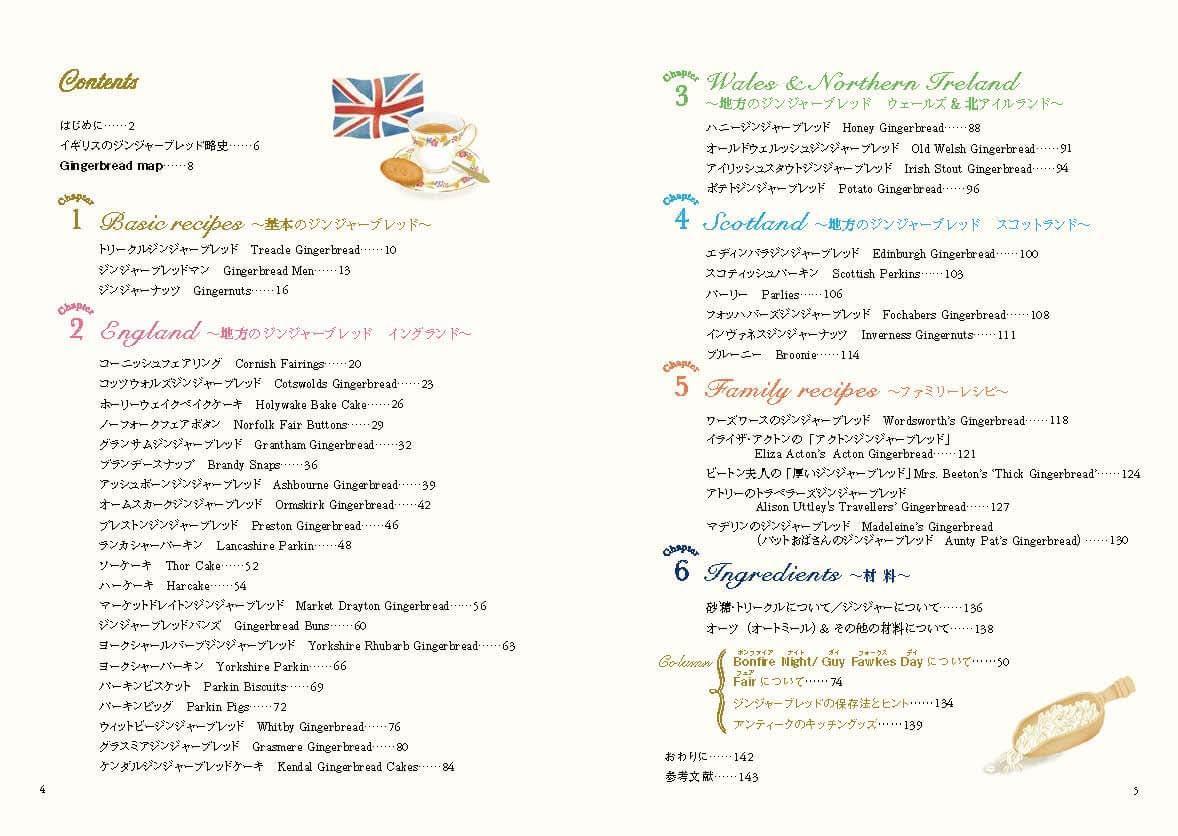 Contents
はじめに……2
イギリスのジンジャーブレッド略史……6
Gingerbread map……8
Chapter
1 Basic recipes ～基本のジンジャーブレッド～
トリークルジンジャーブレッド Treacle Gingerbread……10
ジンジャーブレッドマン Gingerbread Men……13
ジンジャーナッツ Gingernuts……16
Chapter
2 England ～地方のジンジャーブレッド イングランド～
コーニッシュフェアリング Cornish Fairings……20
コッツウォルズジンジャーブレッド Cotswolds Gingerbread……23
ホーリーウェイクベイクケーキ Holywake Bake Cake……26
ノーフォークフェアボタン Norfolk Fair Buttons……29
グランサムジンジャーブレッド Grantham Gingerbread……32
ブランデースナップ Brandy Snaps……36
アッシュボーンジンジャーブレッド Ashbourne Gingerbread……39
オームスカークジンジャーブレッド Ormskirk Gingerbread……42
プレストンジンジャーブレッド Preston Gingerbread……46
ランカシャーパーキン Lancashire Parkin……48
ソーケーキ Thor Cake……52
ハーケーキ Harcake……54
マーケットドレイトンジンジャーブレッド Market Drayton Gingerbread……56
ジンジャーブレッドバンズ Gingerbread Buns……60
ヨークシャールバーブジンジャーブレッド Yorkshire Rhubarb Gingerbread……63
ヨークシャーパーキン Yorkshire Parkin……66
パーキンビスケット Parkin Biscuits……69
パーキンピッグ Parkin Pigs……72
ウィットビージンジャーブレッド Whitby Gingerbread……76
グラスミアジンジャーブレッド Grasmere Gingerbread……80
ケンダルジンジャーブレッドケーキ Kendal Gingerbread Cakes……84
4
Chapter
3 Wales & Northern Ireland
～地方のジンジャーブレッド ウェールズ & 北アイルランド～
ハニージンジャーブレッド Honey Gingerbread……88
オールドウェルッシュジンジャーブレッド Old Welsh Gingerbread……91
アイリッシュスタウトジンジャーブレッド Irish Stout Gingerbread……94
ポテトジンジャーブレッド Potato Gingerbread……96
Chapter
4 Scotland ～地方のジンジャーブレッド スコットランド～
エディンバラジンジャーブレッド Edinburgh Gingerbread……100
スコティッシュパーキン Scottish Perkins……103
パーリー Parlies……106
フォッハバーズジンジャーブレッド Fochabers Gingerbread……108
インヴァネスジンジャーナッツ Inverness Gingernuts……111
ブルーニー Broonie……114
Chapter
5 Family recipes ～ファミリーレシピ～
ワーズワースのジンジャーブレッド Wordsworth's Gingerbread……118
イライザ・アクトンの「アクトンジンジャーブレッド」
Eliza Acton's Acton Gingerbread……121
ビートン夫人の「厚いジンジャーブレッド」Mrs. Beeton's 'Thick Gingerbread'……124
アトリーのトラベラーズジンジャーブレッド
Alison Uttley's Travellers' Gingerbread……127
マデリンのジンジャーブレッド Madeleine's Gingerbread
（パットおばさんのジンジャーブレッド Aunty Pat's Gingerbread）……130
Chapter
6 Ingredients ～材 料～
砂糖・トリークルについて／ジンジャーについて……136
オーツ（オートミール）& その他の材料について……138
ボンファイア ナイト ガイ フォークス デイ
Column Bonfire Night/ Guy Fawkes Day について……50
フェア
Fair について……74
ジンジャーブレッドの保存法とヒント……134
アンティークのキッチングッズ……139
おわりに……142
参考文献……143
5